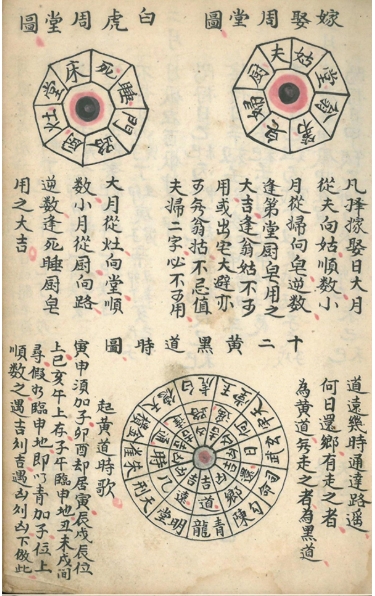 嫁娶周堂圖
夫
姑
堂
翁
第
婦
厨
白虎周堂圖
床
死
睡
門
路
厨
灶
堂
凡擇嫁娶日大月
從夫向姑順數小
月從婦向皂逆數
逢第堂厨皂用之
大吉逢翁姑不可
用或出宅大避亦
可無翁姑不忌值
夫婦二字必不可用
大月從灶向堂順
數小月從厨向路
逆數逢死睡厨皂
用之大吉
十二黃黑道時圖
道遠幾時通達路遥
何日還鄉有走之者
為黃道無走之者為黑道
青龍
明堂
天刑
朱雀
天德
白虎
玉堂
天牢
玄武
司命
勾陳
起黃道時歌
寅申須加子卯酉却居寅辰戌辰位
上巳亥午上存子午臨申地丑未戌间
尋假如臨申地即以青加子位上
順數之遇吉則吉遇凶則凶下倣此